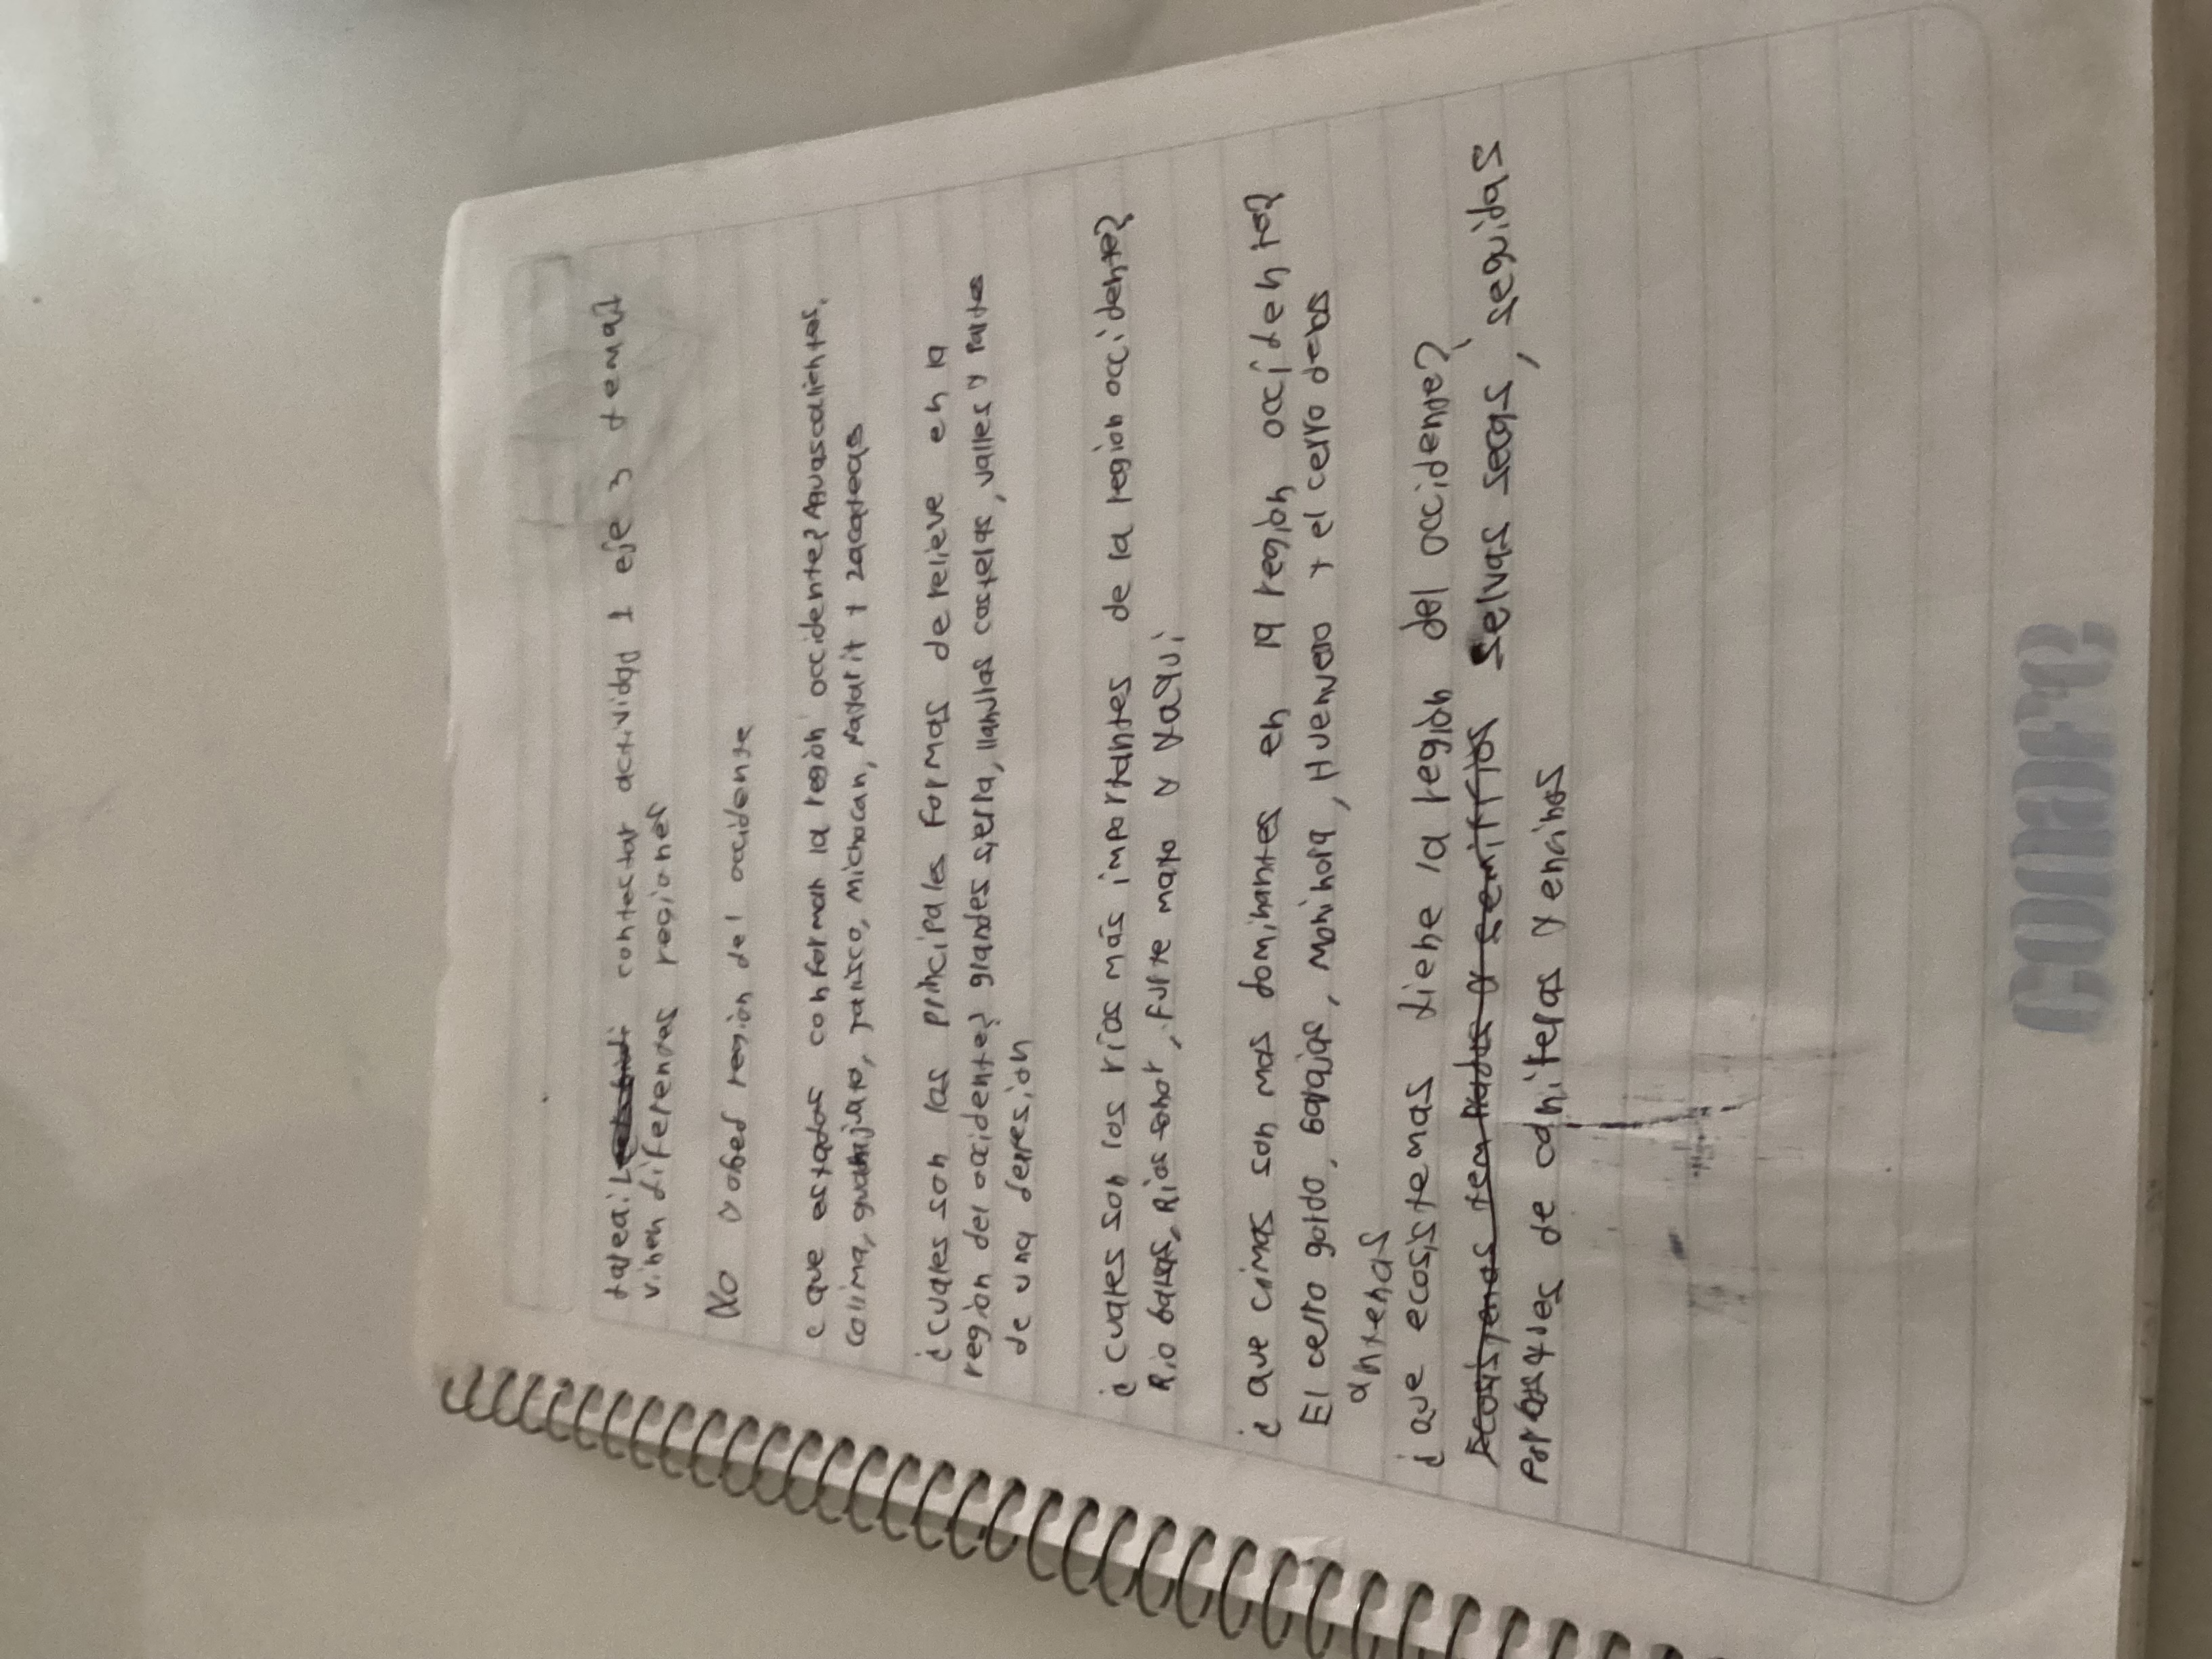 tarea: contestar actividad 1 eje 3 tema1
vinen diferendes regiones
No y obed region del occidente
¿ que estados conforman la región occidente? Aguascalientes,
colima, guanajuato, jalisco, Michoacan, Nayarit y zacatecas
¿cuales son las principales formas de relieve en la
región del occidente? grandes sierra, llanuras costeras, valles y partes
de una depresion
¿ cuales son los rios más importantes de la region occidente?
Rio balsas, Rios sonor, fuerte mayo y yaqui
¿ que cimas son mas dominantes en la región occidente?
El cerro gordo, barajas, Mohinora, Huenueno y el cerro de las
antenas
¿ que ecosistemas tiene la región del occidente?
Ecosistemas templados y semifrios Selvas secas, seguidas
por bosques de coniferas y encinos
conafe